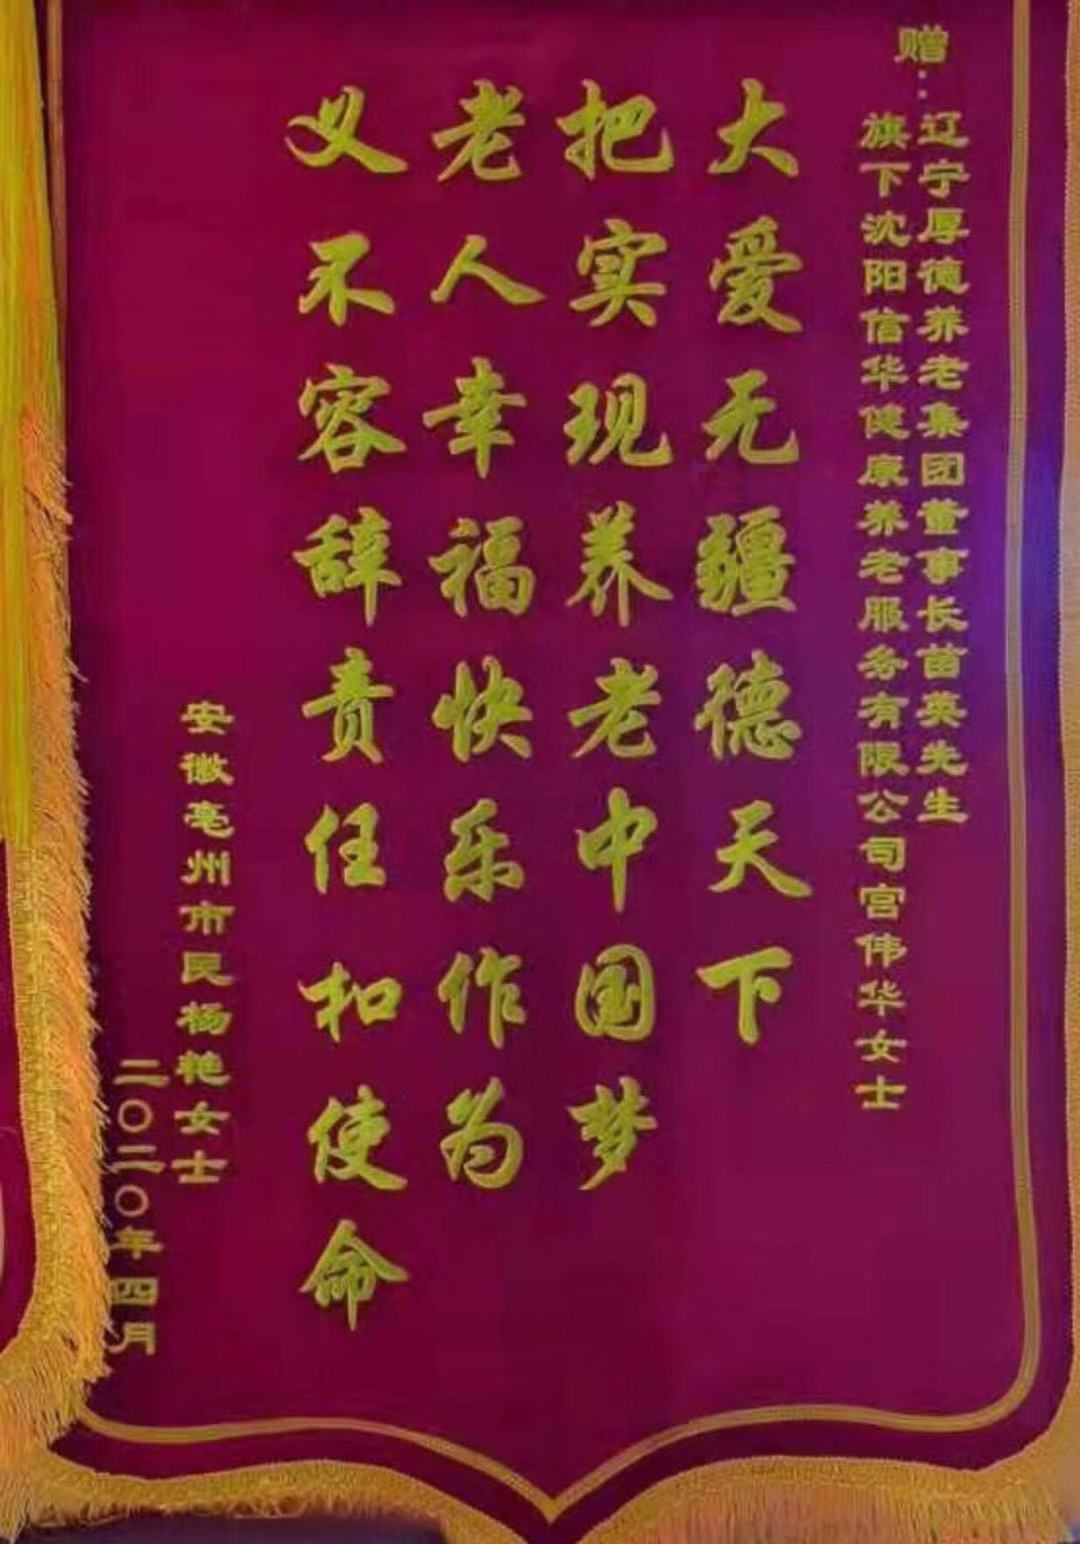 赠：辽宁厚德养老集团董事长苗英先生
旗下沈阳信华健康养老服务有限公司宫伟华女士
大爱无疆德天下
把实现养老中国梦
老人幸福快乐作为
义不容辞责任和使命
安徽亳州市民杨艳女士
二〇二〇年四月